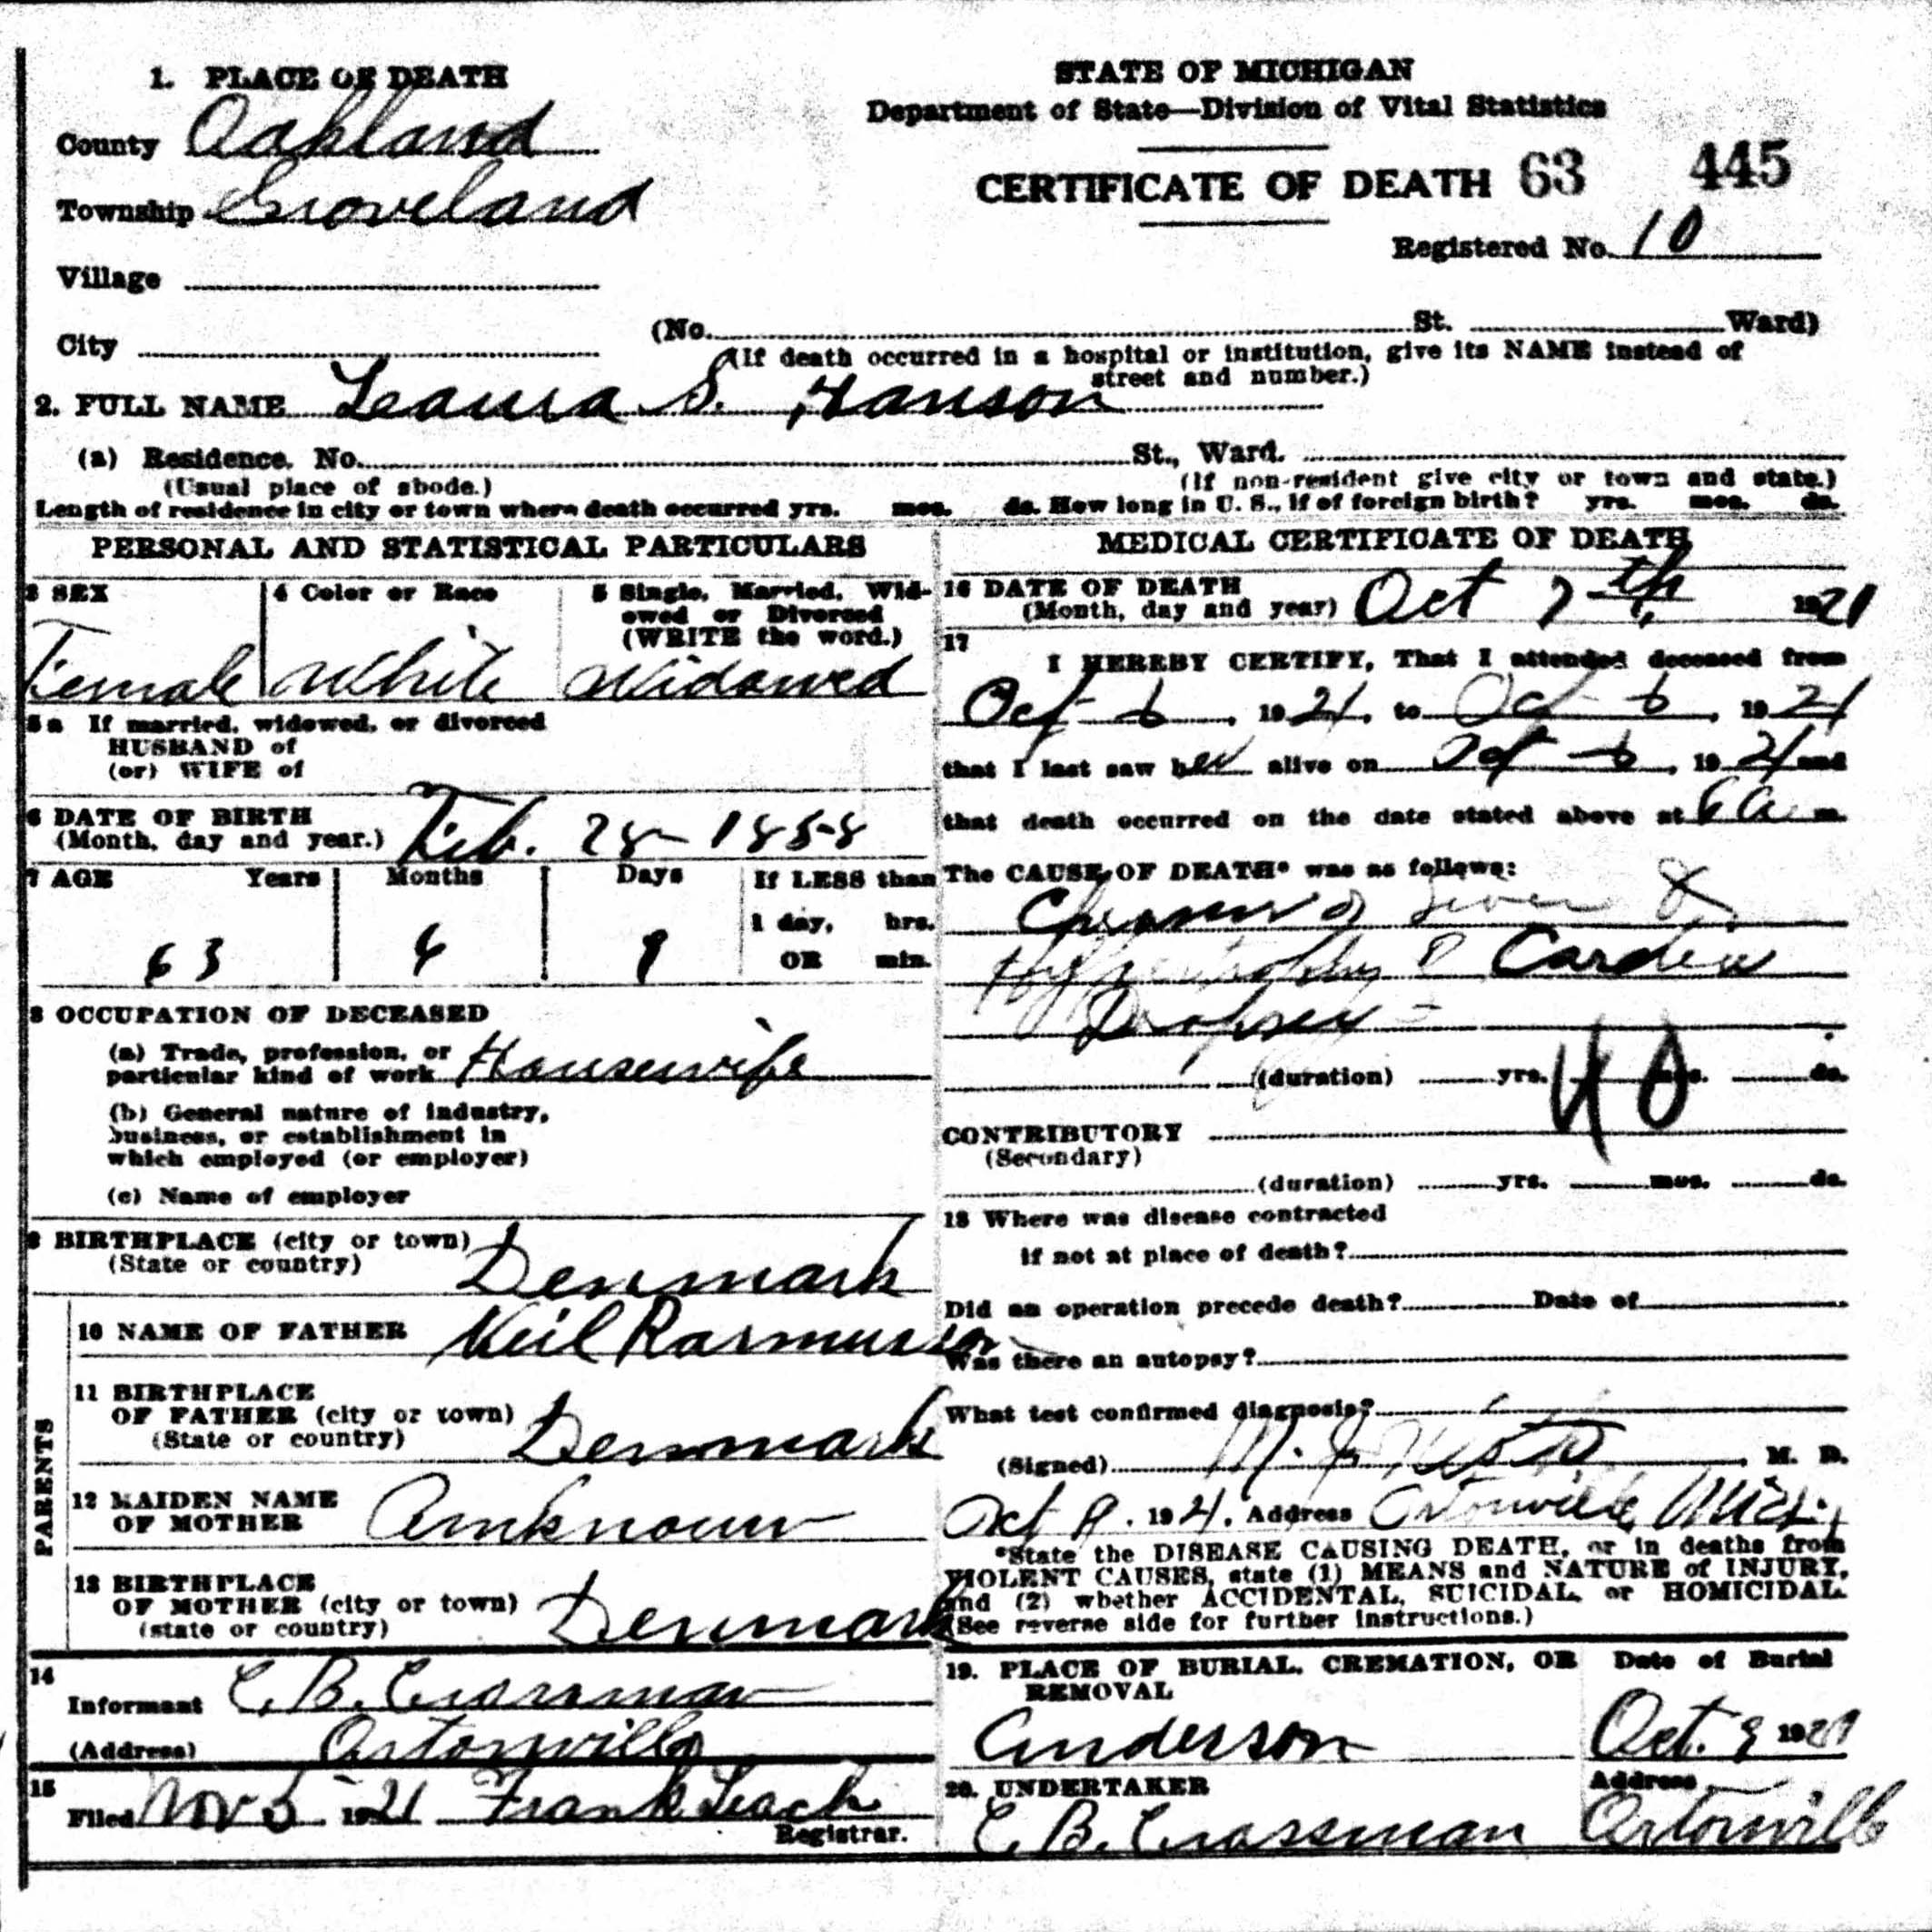 1. PLACE OF DEATH
County Oakland
Township Groveland
Village
City
STATE OF MICHIGAN
Department of State—Division of Vital Statistics
CERTIFICATE OF DEATH 63 445
Registered No. 10
(No. St. Ward)
(If death occurred in a hospital or institution, give its NAME instead of
street and number.)
2. FULL NAME Leaura S. Hanson
(a) Residence. No. St., Ward.
(Usual place of abode.)
(If non-resident give city or town and state.)
Length of residence in city or town where death occurred yrs. mos. ds. How long in U. S., if of foreign birth? yrs. mos. ds.
PERSONAL AND STATISTICAL PARTICULARS
3 SEX
Female
4 Color or Race
White
5 Single, Married, Wid-
owed or Divorced
(WRITE the word.)
Widowed
5a If married, widowed, or divorced
HUSBAND of
(or) WIFE of
6 DATE OF BIRTH
(Month, day and year.) Feb. 28 - 1858
7 AGE Years Months Days If LESS than
1 day, hrs.
OR min.
63 6 9
8 OCCUPATION OF DECEASED
(a) Trade, profession, or
particular kind of work Housewife
(b) General nature of industry,
business, or establishment in
which employed (or employer)
(c) Name of employer
9 BIRTHPLACE (city or town)
(State or country) Denmark
PARENTS
10 NAME OF FATHER Neil Rasmussen
11 BIRTHPLACE
OF FATHER (city or town)
(State or country) Denmark
12 MAIDEN NAME
OF MOTHER Unknown
13 BIRTHPLACE
OF MOTHER (city or town)
(state or country) Denmark
14
Informant C. B. Crossman
(Address) Ortonville
15
Filed Nov 5 1921 Frank Leach
Registrar.
MEDICAL CERTIFICATE OF DEATH
16 DATE OF DEATH
(Month, day and year) Oct 7th 1921
17
I HEREBY CERTIFY, That I attended deceased from
Oct 6, 1921, to Oct 6, 1921
that I last saw her alive on Oct 6, 1921 and
that death occurred on the date stated above at 6 a m.
The CAUSE OF DEATH* was as follows:
of Liver &
Hypertrophy Cardiac
Dropsy
(duration) yrs. mos. ds.
40
CONTRIBUTORY
(Secondary)
(duration) yrs. mos. ds.
18 Where was disease contracted
if not at place of death?
Did an operation precede death? Date of
Was there an autopsy?
What test confirmed diagnosis?
(Signed) M. D.
Oct 9, 1921, Address Ortonville, Mich.
*State the DISEASE CAUSING DEATH, or in deaths from
VIOLENT CAUSES, state (1) MEANS and NATURE of INJURY,
and (2) whether ACCIDENTAL, SUICIDAL, or HOMICIDAL.
(See reverse side for further instructions.)
19. PLACE OF BURIAL, CREMATION, OR
REMOVAL
Anderson
Date of Burial
Oct. 9 1921
20. UNDERTAKER
C. B. Crossman
Address
Ortonville